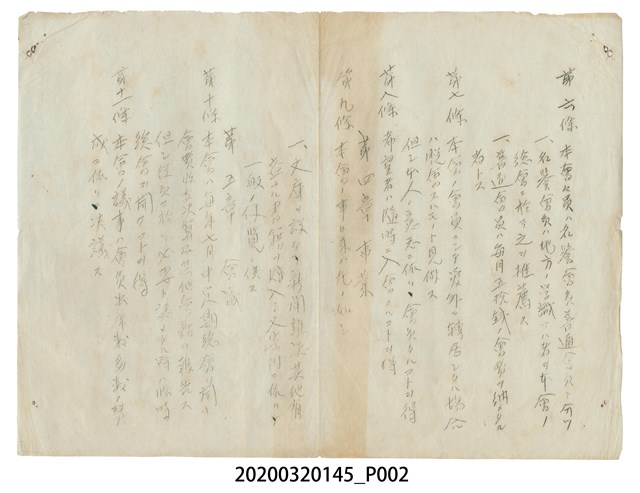 第六條 本會々員ハ名譽會員普通會員ニ分ツ
一、名譽會員ハ地方ノ學識アル者ヲ本會ノ
總會ニ於テ之ヲ推薦ス
一、普通會員ハ每月五拾錢ノ會費ヲ納ムル
者トス
第七條 本會ノ會員ニシテ管外ニ轉居シタル場合
ハ脱會シタルモノト見做ス
但シ本人ノ意志ニ依リ會員タルコトヲ得
第八條 希望者ハ隨時入會スルコトヲ得
第四章 事業
第九條 本會ノ事業ハ左ノ如シ
一、文庫ヲ設ケ新聞雜誌其他有
益ナル書籍ヲ購入シ又ハ寄附ニ依リ
一般ノ休覽ニ供ス
第五章 會議
第十條 本會ハ每年七月中定期總會ヲ開キ
會費收支決算及其他會務ヲ報告ス
但シ役員ニ於テ必要ト認ムル時ハ臨時
總會ヲ開クコトヲ得
第十一條 本會ノ議事ハ會員出席者多數ノ賛
成ニ依リ決議ス
20200320145_P002